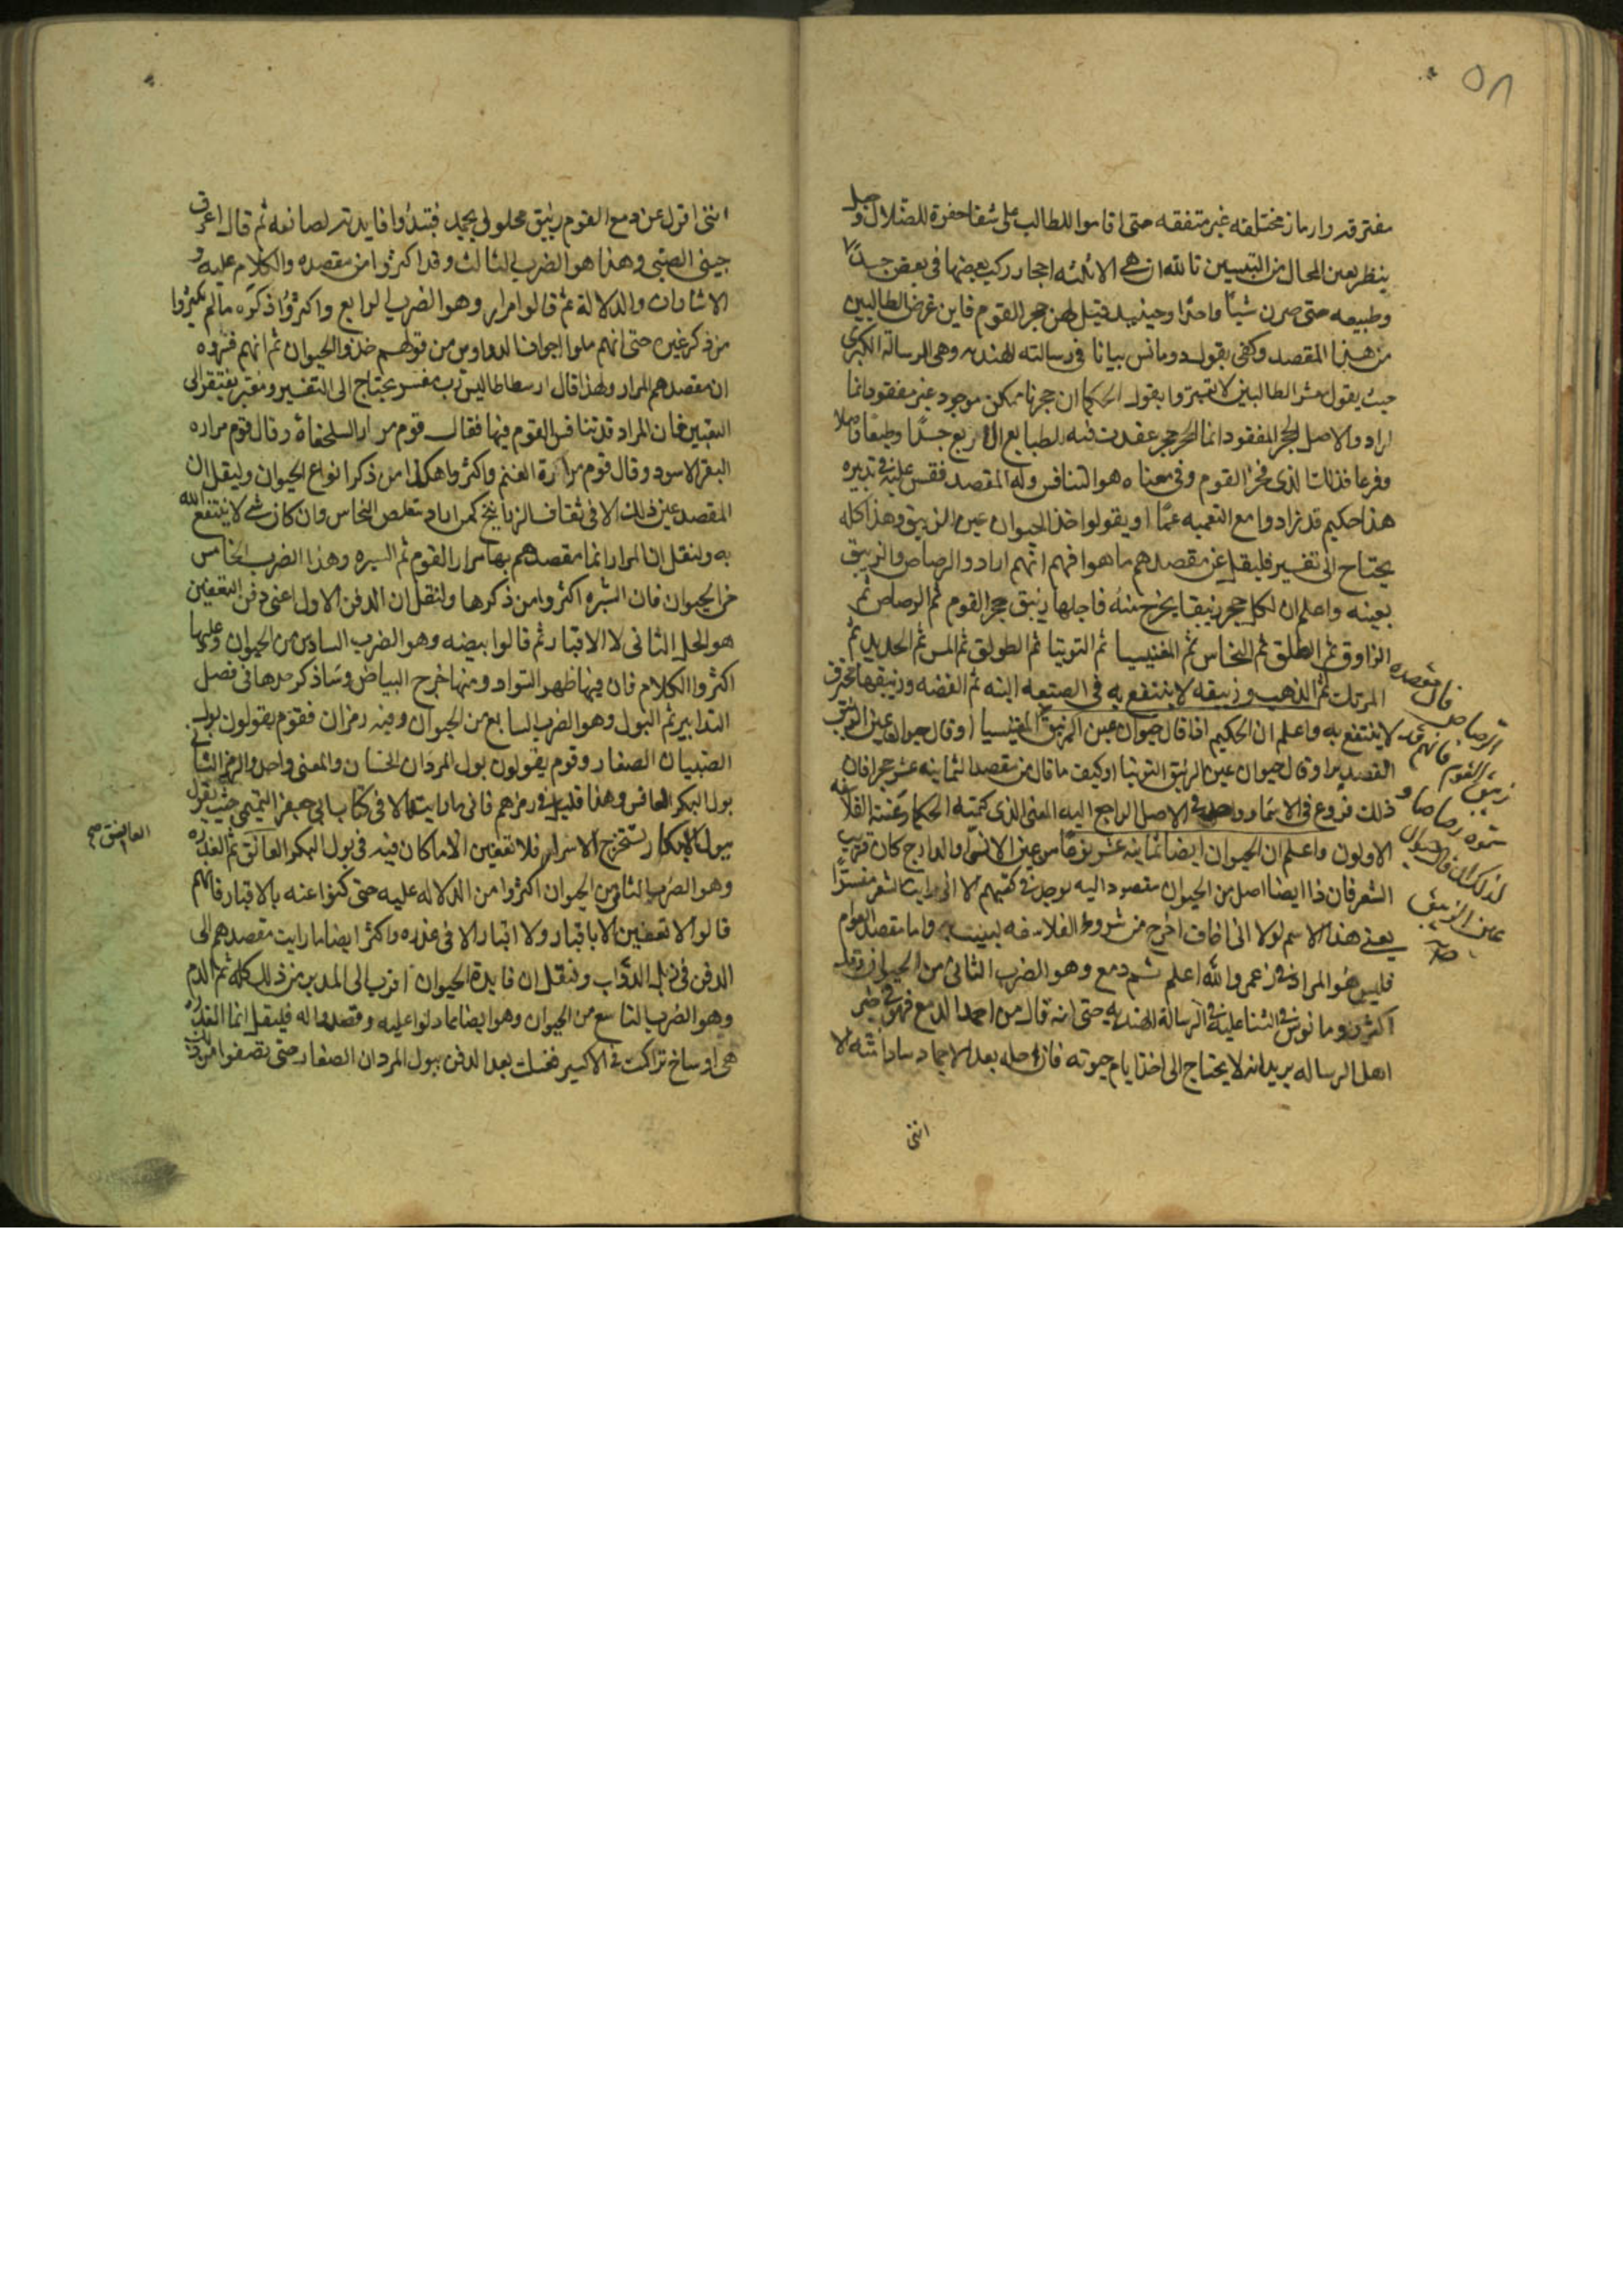 ٥٨
مفترقه وارماز مختلفه غير متفقه حتى اقاموا للطالب على شفا حفرة للضلال و
ينظر بعين المحال من التبيين تالله ان هي الا ثلثه احجار ركب بعضها في بعض جسدًا
وطبيعه حتى صرن شيئًا واحدًا وحينيد قيل لهن حجر القوم فاين غرض الطالبين
من هذا المقصد وكفى بقول دومانس بيانا في رسالته الهنديه وهى الرسالة الكبرى
حيث يقول معشر الطالبين لا تميزوا بقول الحكما ان حجرنا ممكن موجود غير مفقود انما
اراد والاصل الحجر المفقود انما الحجر حجر عقدت فيه الطبايع الاربع جسدًا وطبعًا واصلا
وفرعا فذلك الذى فخر القوم وفى معناه هو التنافس وله المقصد فقس عليه في تدبيره
هذا حكيم قد زادوا مع التعميه عمًا او يقولوا خذ الحيوان عين الزيبق وهذا كله
يحتاج الى تفسير فليقل عن مقصدهم ما هو افهم انهم ارادوا الرصاص والزيبق
بعينه واعلم ان لكل حجر زيبقا يخرج منه فاجلها زيبق حجر القوم ثم الرصاص ثم
الزاوق ثم الطلق ثم النحاس ثم المغنيسيا ثم التوتيا ثم الطولق ثم المس ثم الحديد ثم
المرتك ثم الذهب وزيبقه لا ينتفع به في الصنعه البته ثم الفضه وزيبقها محترق
لا ينتفع به واعلم ان الحكيم اذا قال حيوان عين الزيبق المغنيسيا او قال حيوان عين الزيبق
القصدير او قال حيوان عين الزيبق التوتيا او كيف ما قال من مقصد الثمانيه عشر حجرا فان
ذلك فروع في الاسما وواحد في الاصل الراجع اليه المعنى الذى كتمته الحكما وعنته الفلاسفه
الاولون واعلم ان الحيوان ايضا ثمانيه عشر نوعًا من عين الانسى والدارج كان قريب
الشعر فان ذا ايضا اصل من الحيوان مقصود اليه يوجد في كتبهم الا انى رايت الشعر مفسرًا
يعنى هذا الاسم لولا انى اخاف اخرج من شروط الفلاسفه لبينته واما مقصد العوام
فليس هو المراد في زعمى والله اعلم ثم دمع وهو الضرب الثانى من الحيوان وقد
اكثر دومانوس في الثنا عليه في الرسالة الهنديه حتى انه قال من اجمد الدمع فهو في خير
اهل الرساله يريد انه لا يحتاج الى اخذ ايام حيوته فان حله بعد الاجماد
اننى
قال مقصده
الرصاص
زيبق القوم فانهم قد
سموه رصاصا و
لذلك ان قال حيوان
عين الزيبق
صح
اننى اقول عن دمع القوم زيبق محلول يجمد فتبدوا فايدته لصانعه ثم قال اعرف
جيض الصبى وهذا هو الضرب الثالث وقد اكثروا من مقصده والكلام عليه و
الاشارات والدلالة ثم قالوا مرار وهو الضرب الرابع واكثروا ذكره مالم يكثروا
من ذكر غيره حتى انهم ملوا اجواف الدواوين من قولهم خذوا الحيوان ثم انهم فسروه
ان مقصدهم المرار ولهذا قال ارسطاطاليس رب مفسر يحتاج الى التفسير ومعبر يفتقر الى
التعبير فان المراد قد تنافس القوم فيها فقال قوم مرار السلحفاة وقال قوم مراره
البقر الاسود وقال قوم مرارة الغنم واكثروا هكذا من ذكر انواع الحيوان وليقل ان
المقصد عين ذلك الا في ثقاف الزرنايخ كمن اراد تقلص النحاس وان كان شى لا ينتفع الله
به ولنقل ان المرار انما مقصدهم بها مرار القوم ثم السره وهذا الضرب الخامس
من الحيوان فان السره اكثروا من ذكرها ولنقل ان الدفن الاول اعنى دفن التعفين
هو الحل الثانى لا الاقبار ثم قالوا بيضه وهو الضرب السادس من الحيوان وعليها
اكثروا الكلام فان فيها ظهر السواد ومنها خرج البياض وساذكر سرها في فصل
التدابير ثم البول وهو الضرب السابع من الحيوان وفيه رمزان فقوم يقولون بول
الصبيان الصغار وقوم يقولون بول المردان الحسان والمعنى واحد والرمز الثانى
بول البكر العانس وهذا قليل في رمزهم فانى ما رايتها الا في كتاب ابى جعفر التميمى حيث يقول
ببول الابكار تستخرج الاسرار فلا تعفين الا ما كان فيه في بول البكر العاتق ثم العذره
وهو الضرب الثامن من الحيوان اكثروا من الدلاله عليه حتى كنوا عنه بالاقبار فانهم
قالوا لا تعفين الا باقبار ولا اقبار الا في عذره واكثر ايضا ما رايت مقصدهم الى
الدفن في زبل الدواب ولنقل ان فايدة الحيوان اقرب الى المدبر من ذلك كله ثم الدم
وهو الضرب التاسع من الحيوان وهو ايضا مما دلوا عليه وقصدوا له فليقل انما العذره
هى اوساخ تراكت في الاكسير فغسلت بعد الدفن ببول المردان الصغار حتى تصفوا من
العاتق صح